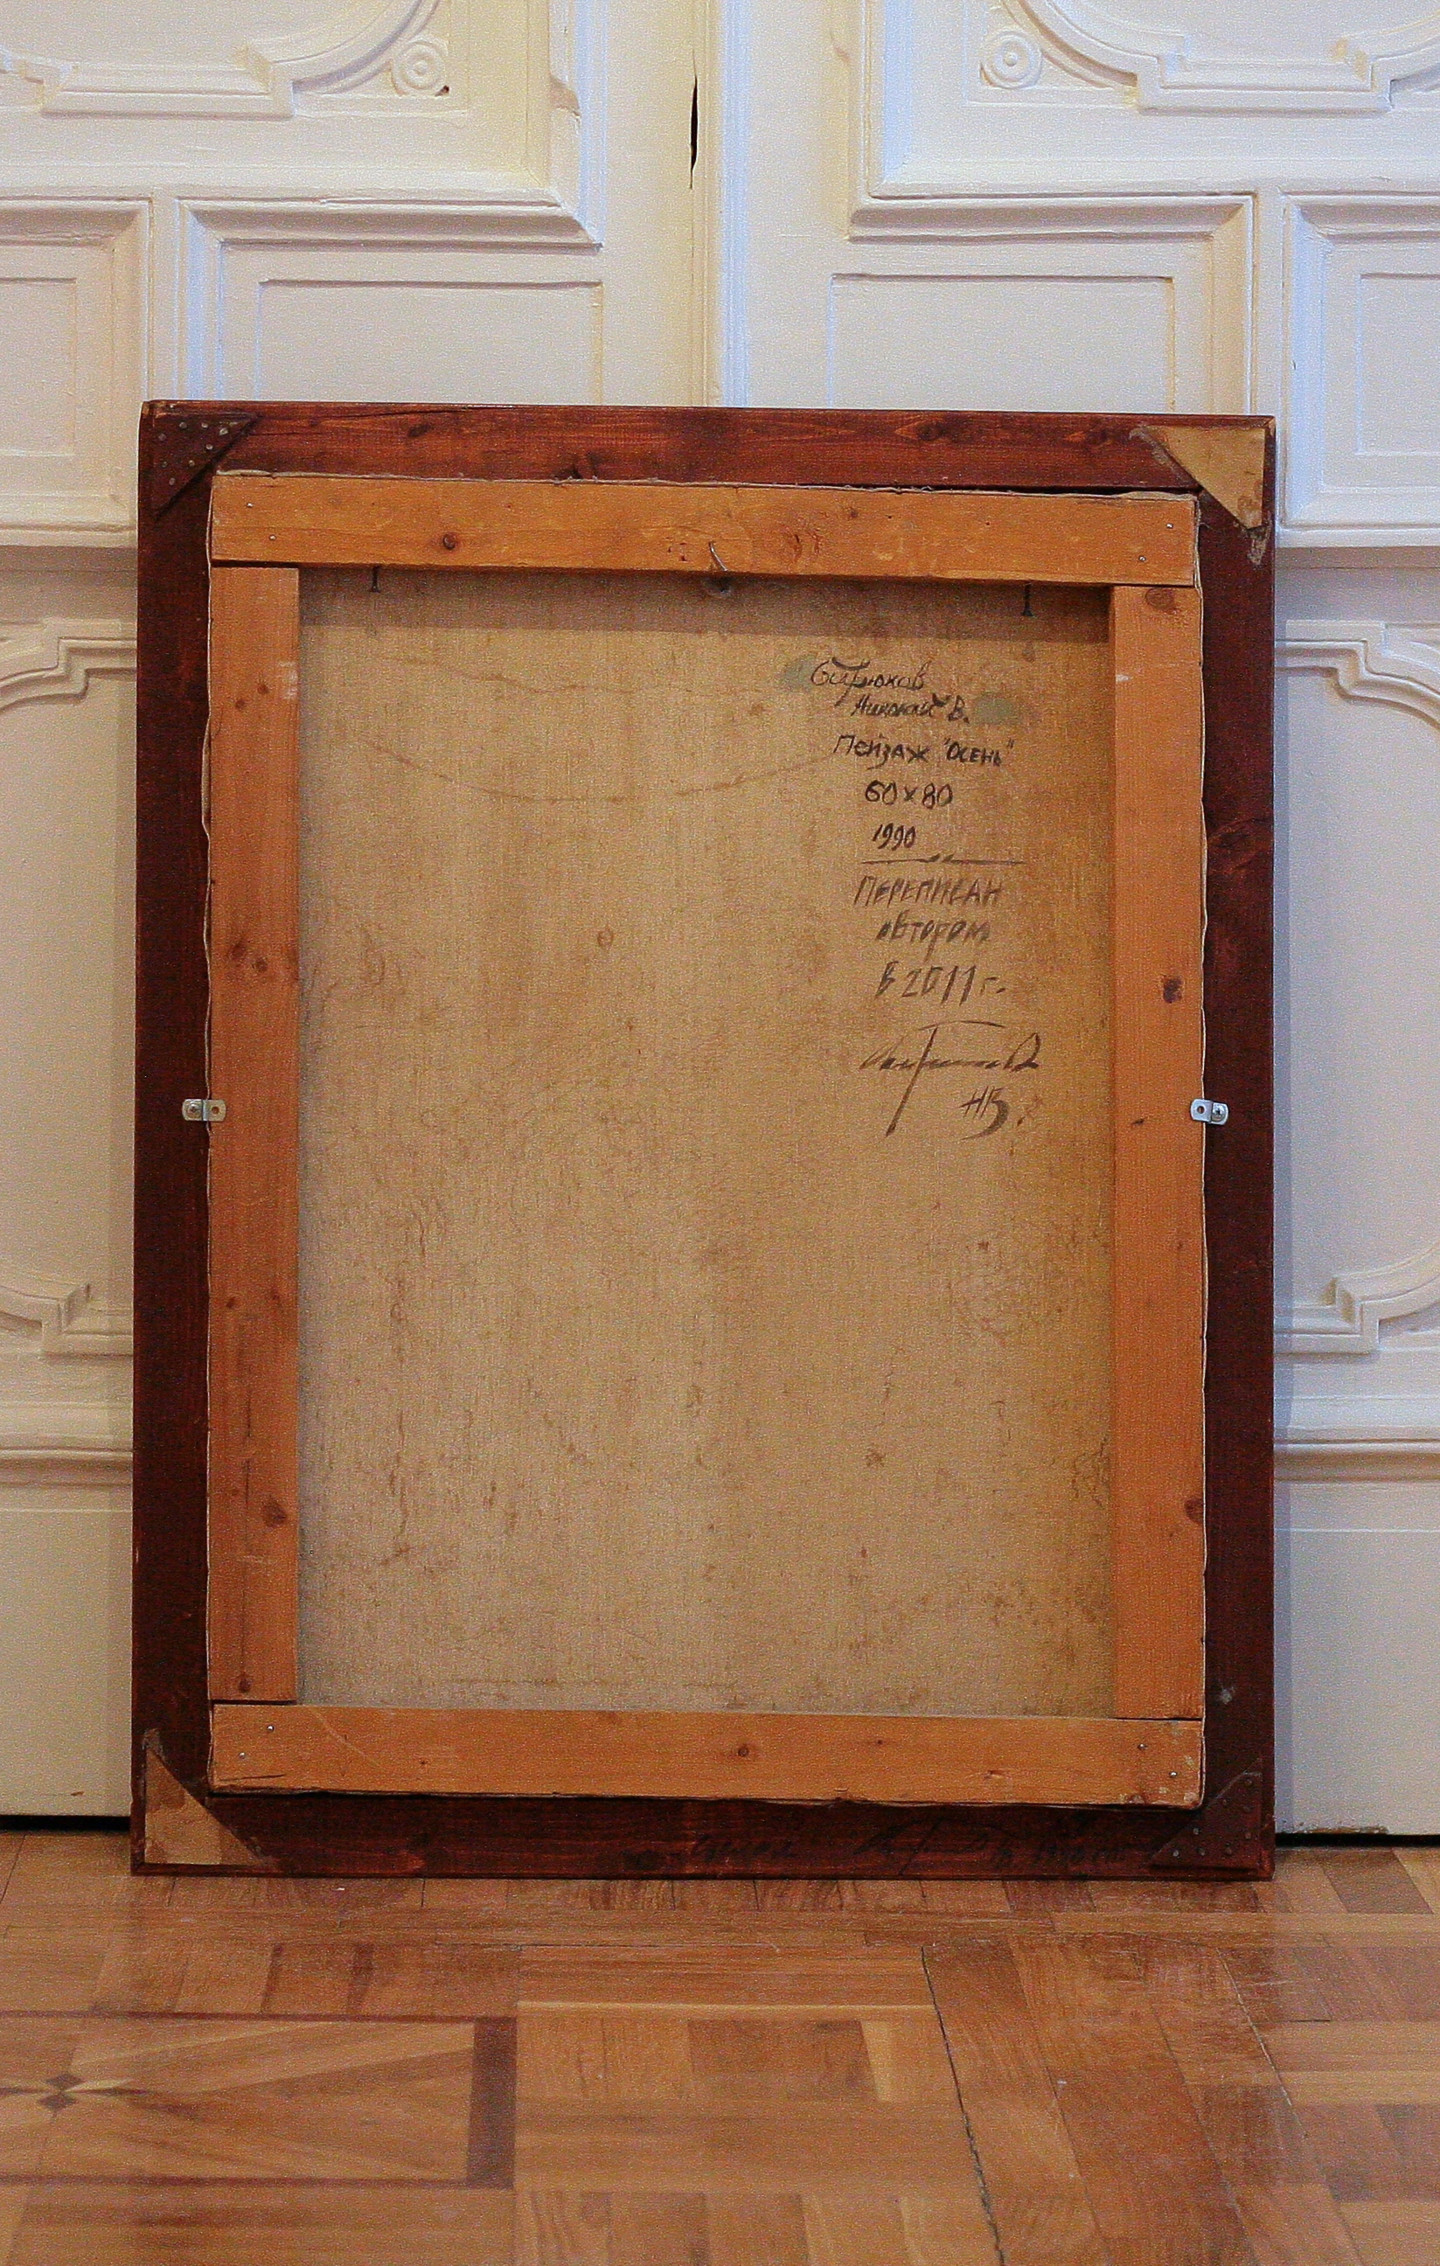 Бирюков
Николай В.
Пейзаж "Осень"
60x80
1990
Переписан
автором
в 2011 г.
НВ.